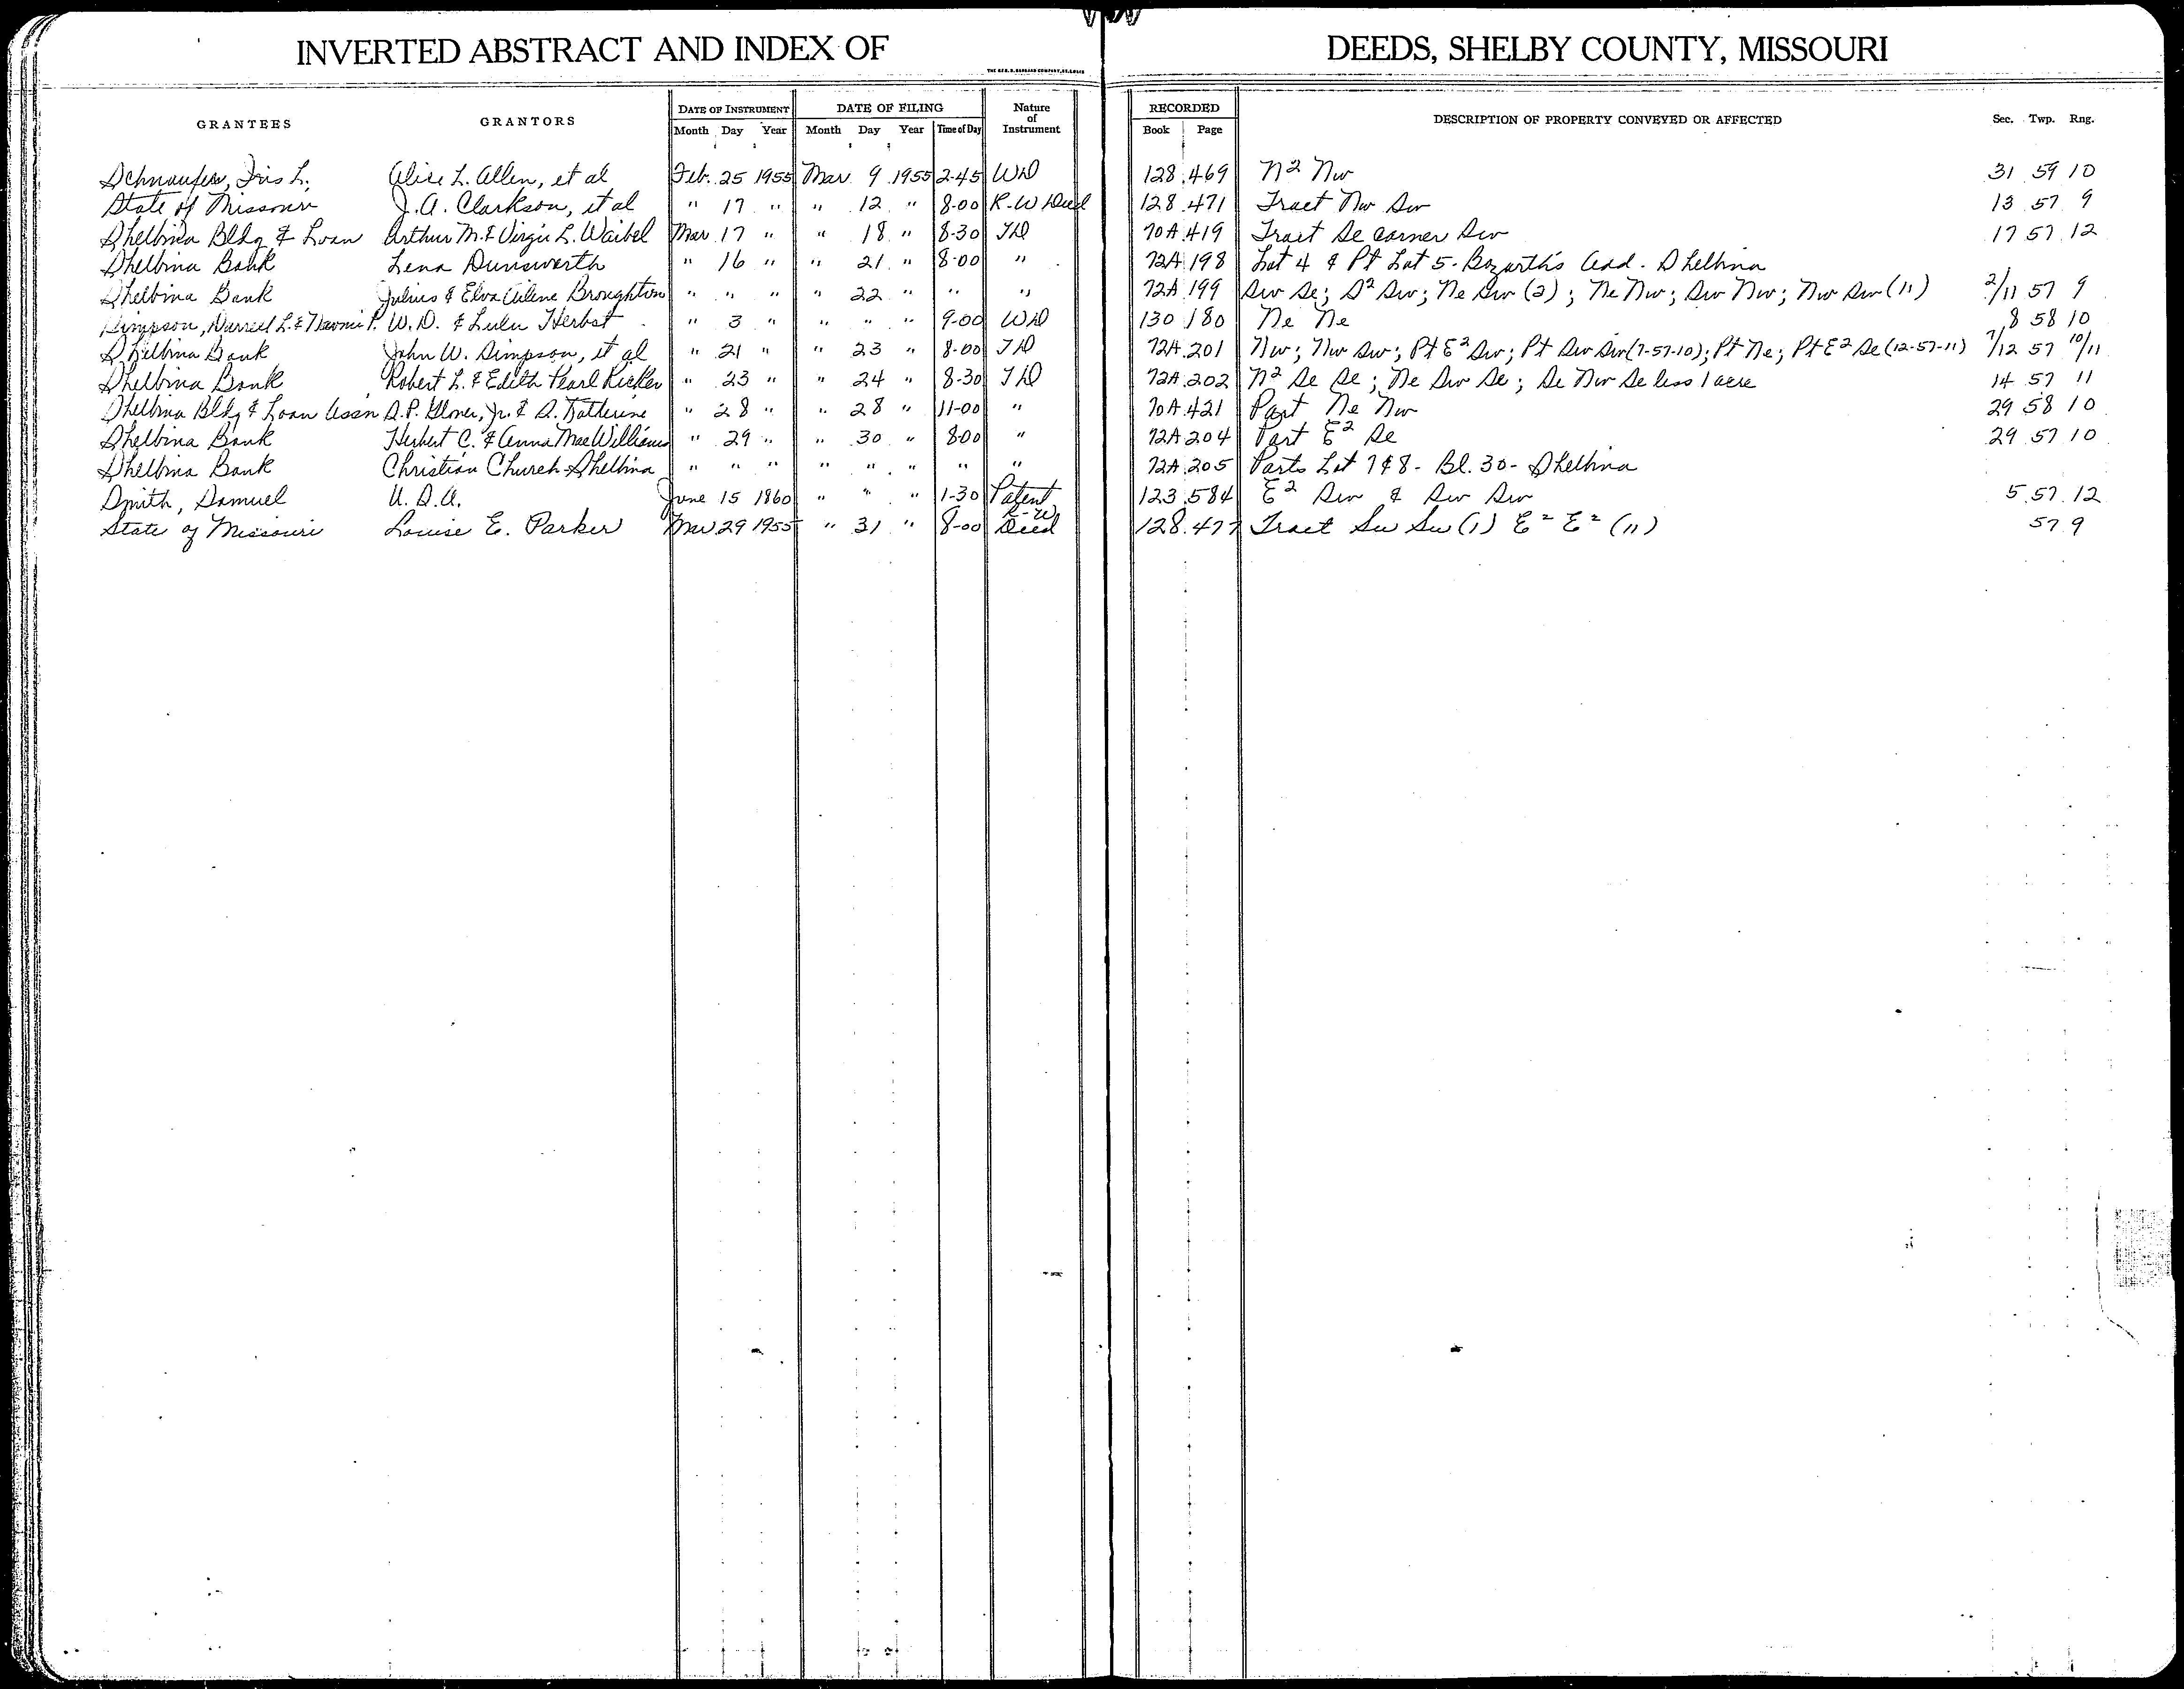 INVERTED ABSTRACT AND INDEX OF DEEDS, SHELBY COUNTY, MISSOURI
GRANTEES GRANTORS DATE OF INSTRUMENT Month Day Year DATE OF FILING Month Day Year Time of Day Nature of Instrument RECORDED Book Page DESCRIPTION OF PROPERTY CONVEYED OR AFFECTED Sec. Twp. Rng.
Schnaufer, Iris L. Alice L. Allen, et al Feb. 25 1955 Mar. 9 1955 2-45 WD 128 469 N2 Nw 31 59 10
State of Missouri J.A. Clarkson, et al " 17 " " 12 " 8-00 R-W Deed 128 471 Tract Nw Sw 13 57 9
Shelbina Bldg & Loan Arthur M. & Virgie L. Waibel Mar 17 " " 18 " 8-30 TD 70A 419 Tract Se corner Sw 17 57 12
Shelbina Bank Lena Dunsworth " 16 " " 21 " 8-00 " 72A 198 Lot 4 & Pt Lot 5 - Bozarth's Add. - Shelbina
Shelbina Bank Julius & Elva Arlene Broughton " " " " 22 " " " 72A 199 Sw Se; S2 Sw; Ne Sw (2); Ne Nw; Sw Nw; Nw Sw (11) 2/11 57 9
Simpson, Durrell L. & Naomi P. W. D. & Lulu Herbst " 3 " " " " 9-00 WD 130 180 Ne Ne 8 58 10
Shelbina Bank John W. Simpson, et al " 21 " " 23 " 8-00 TD 72A 201 Nw; Nw Sw; Pt E2 Sw; Pt Sw Sw (7-57-10); Pt Ne; Pt E2 Se (12-57-11) 7/12 57 10/11
Shelbina Bank Robert L. & Edith Pearl Ricker " 23 " " 24 " 8-30 TD 72A 202 N2 Se Se; Ne Sw Se; Se Nw Se less 1 acre 14 57 11
Shelbina Bldg & Loan Assn S.P. Glover, Jr. & S. Katherine " 28 " " 28 " 11-00 " 70A 421 Part Ne Nw 29 58 10
Shelbina Bank Herbert C. & Anna Mae Williams " 29 " " 30 " 8-00 " 72A 204 Part E2 Se 29 57 10
Shelbina Bank Christian Church - Shelbina " " " " " " " " 72A 205 Parts Lot 7 & 8 - Bl. 30 - Shelbina
Smith, Samuel U.S.A. June 15 1860 " " " 1-30 Patent 123 584 E2 Sw & Sw Sw 5 57 12
State of Missouri Louise E. Parker Mar 29 1955 " 31 " 8-00 R-W Deed 128 477 Tract Sw Sw (1) E2 E2 (11) 57 9